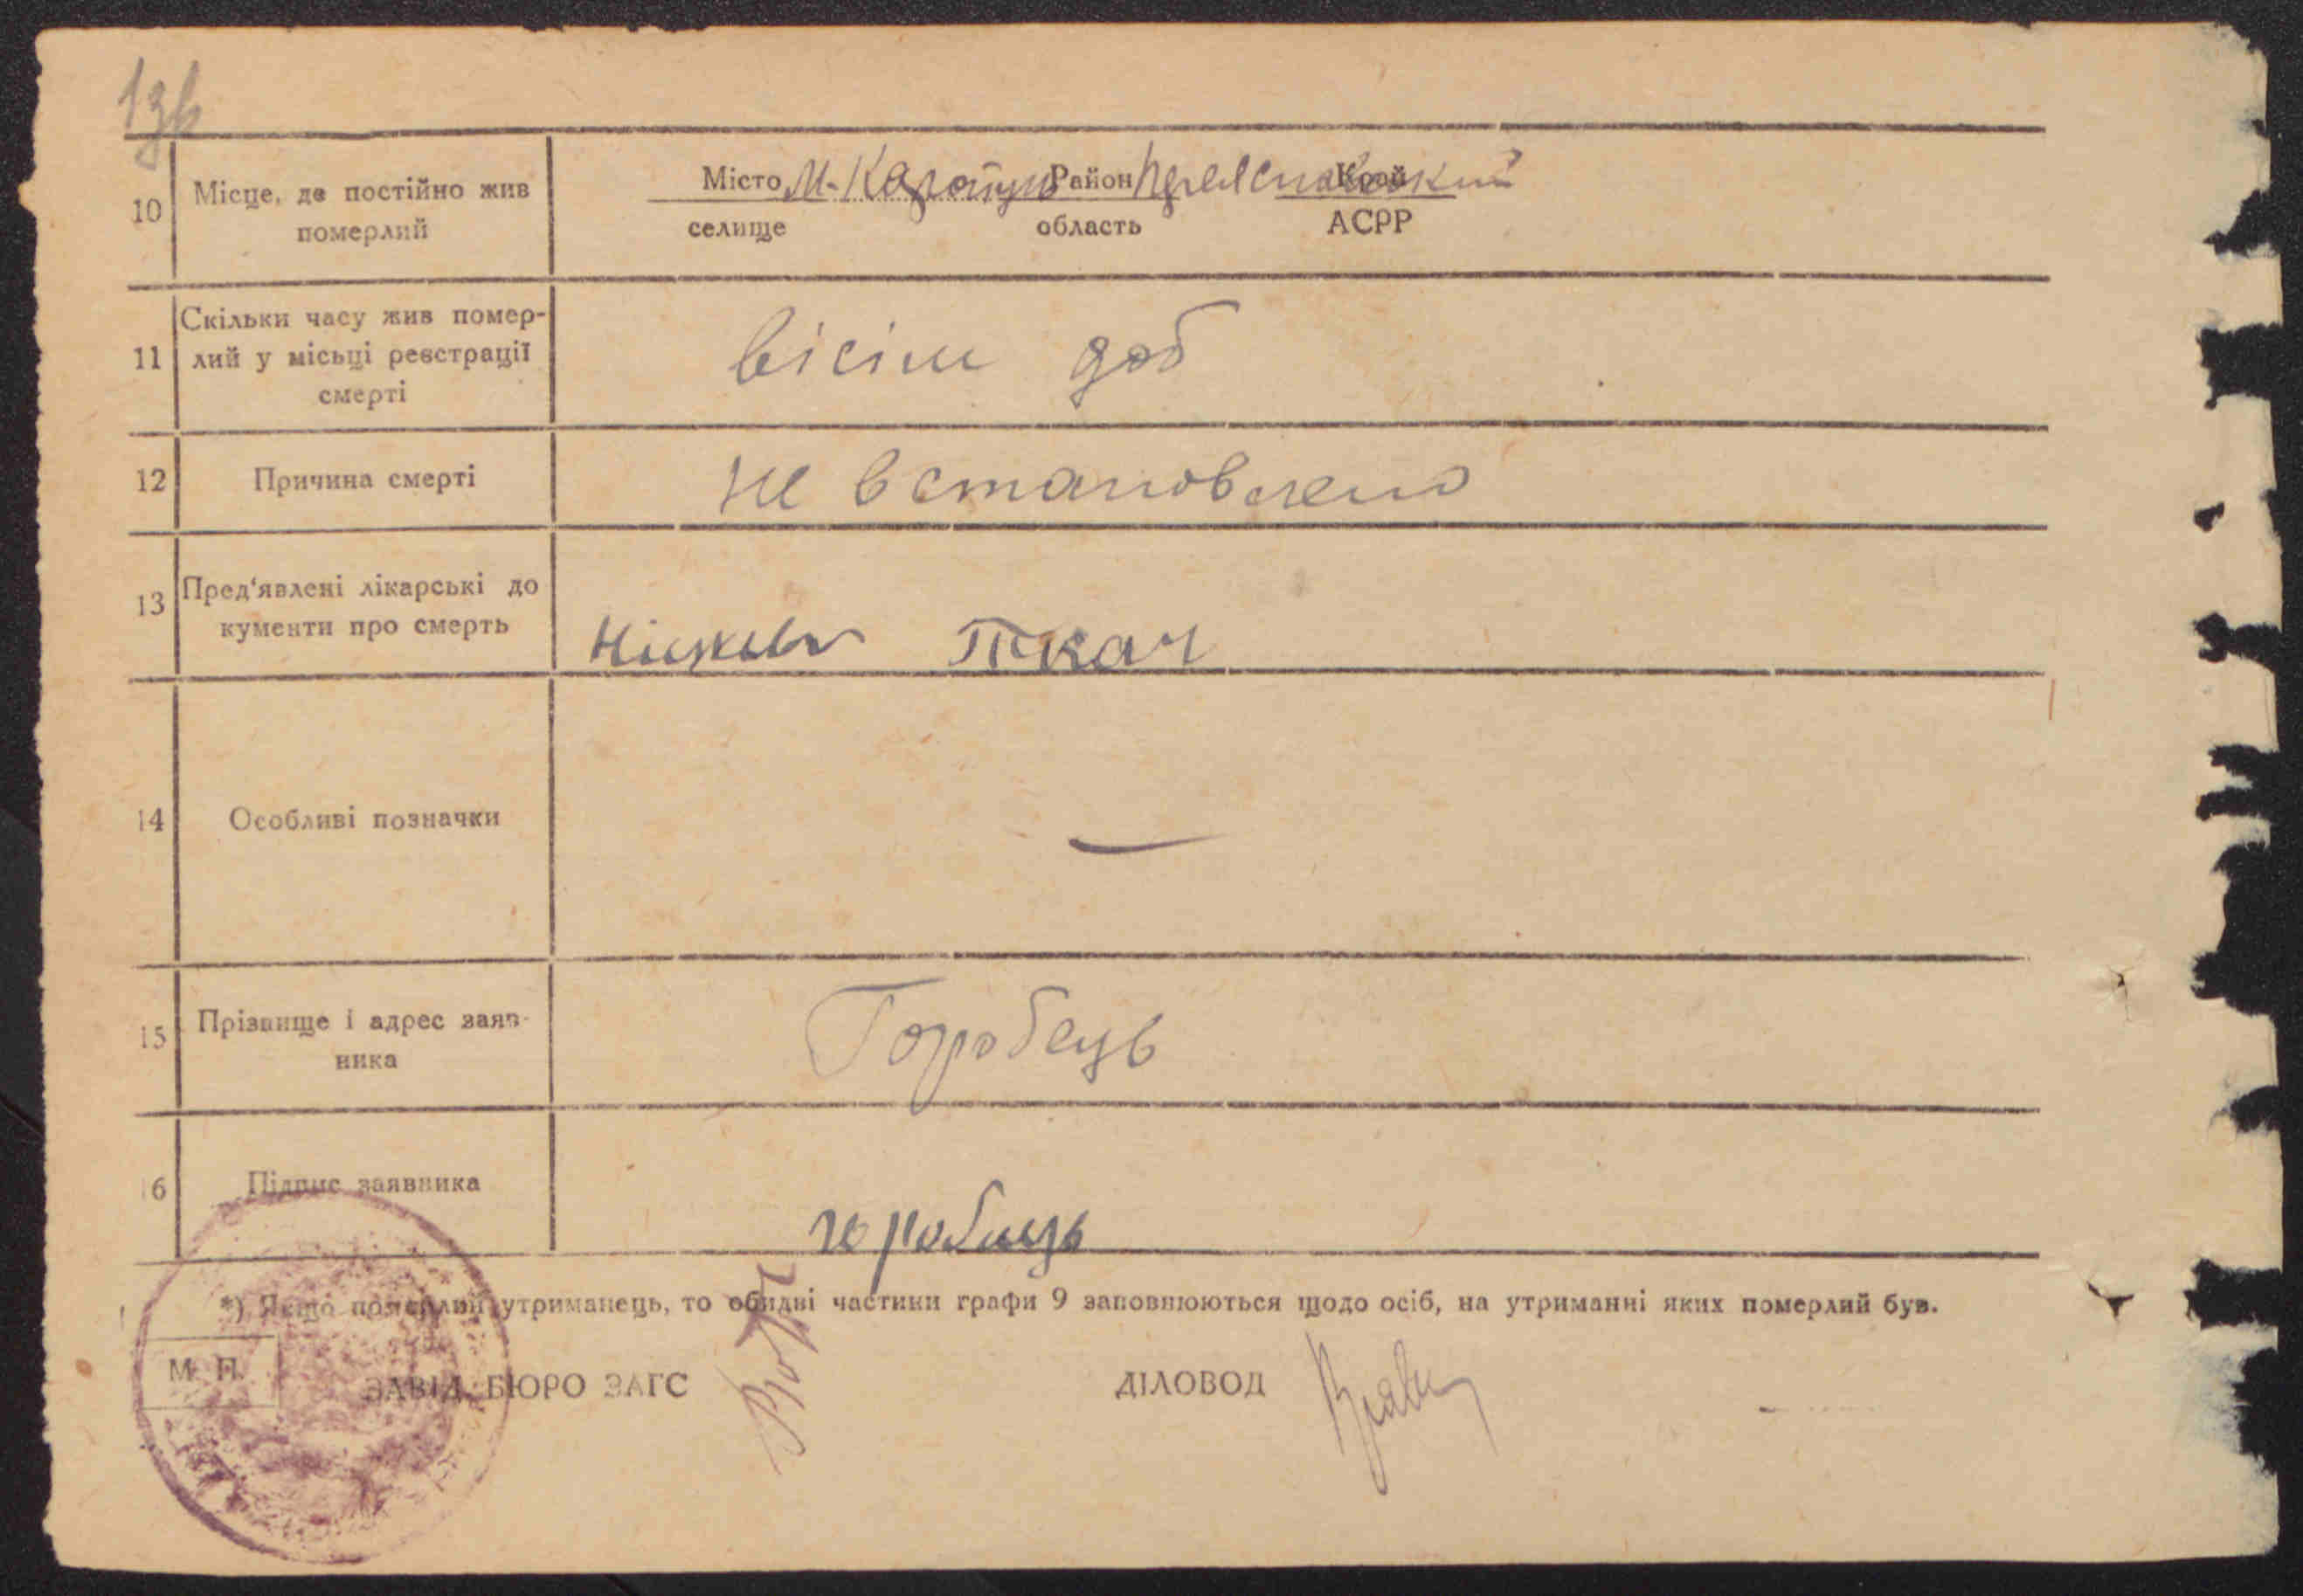 13б
10 Місце, де постійно жив померлий
Місто м. Каратуль Район Переяславський Край
селище область АСРР
11 Скільки часу жив помер-
лий у місьці реєстрації
смерті
вісім доб
12 Причина смерті
не встановлено
13 Пред'явлені лікарські до
кументи про смерть
Ткач
14 Особливі позначки
—
15 Прізвище і адрес заяв-
ника
Горобець
16 Підпис заявника
горобець
*) Якщо померлий утриманець, то обидві частини графи 9 заповнюються щодо осіб, на утриманні яких померлий був.
М. П.
ЗАВІД. БЮРО ЗАГС ДІЛОВОД